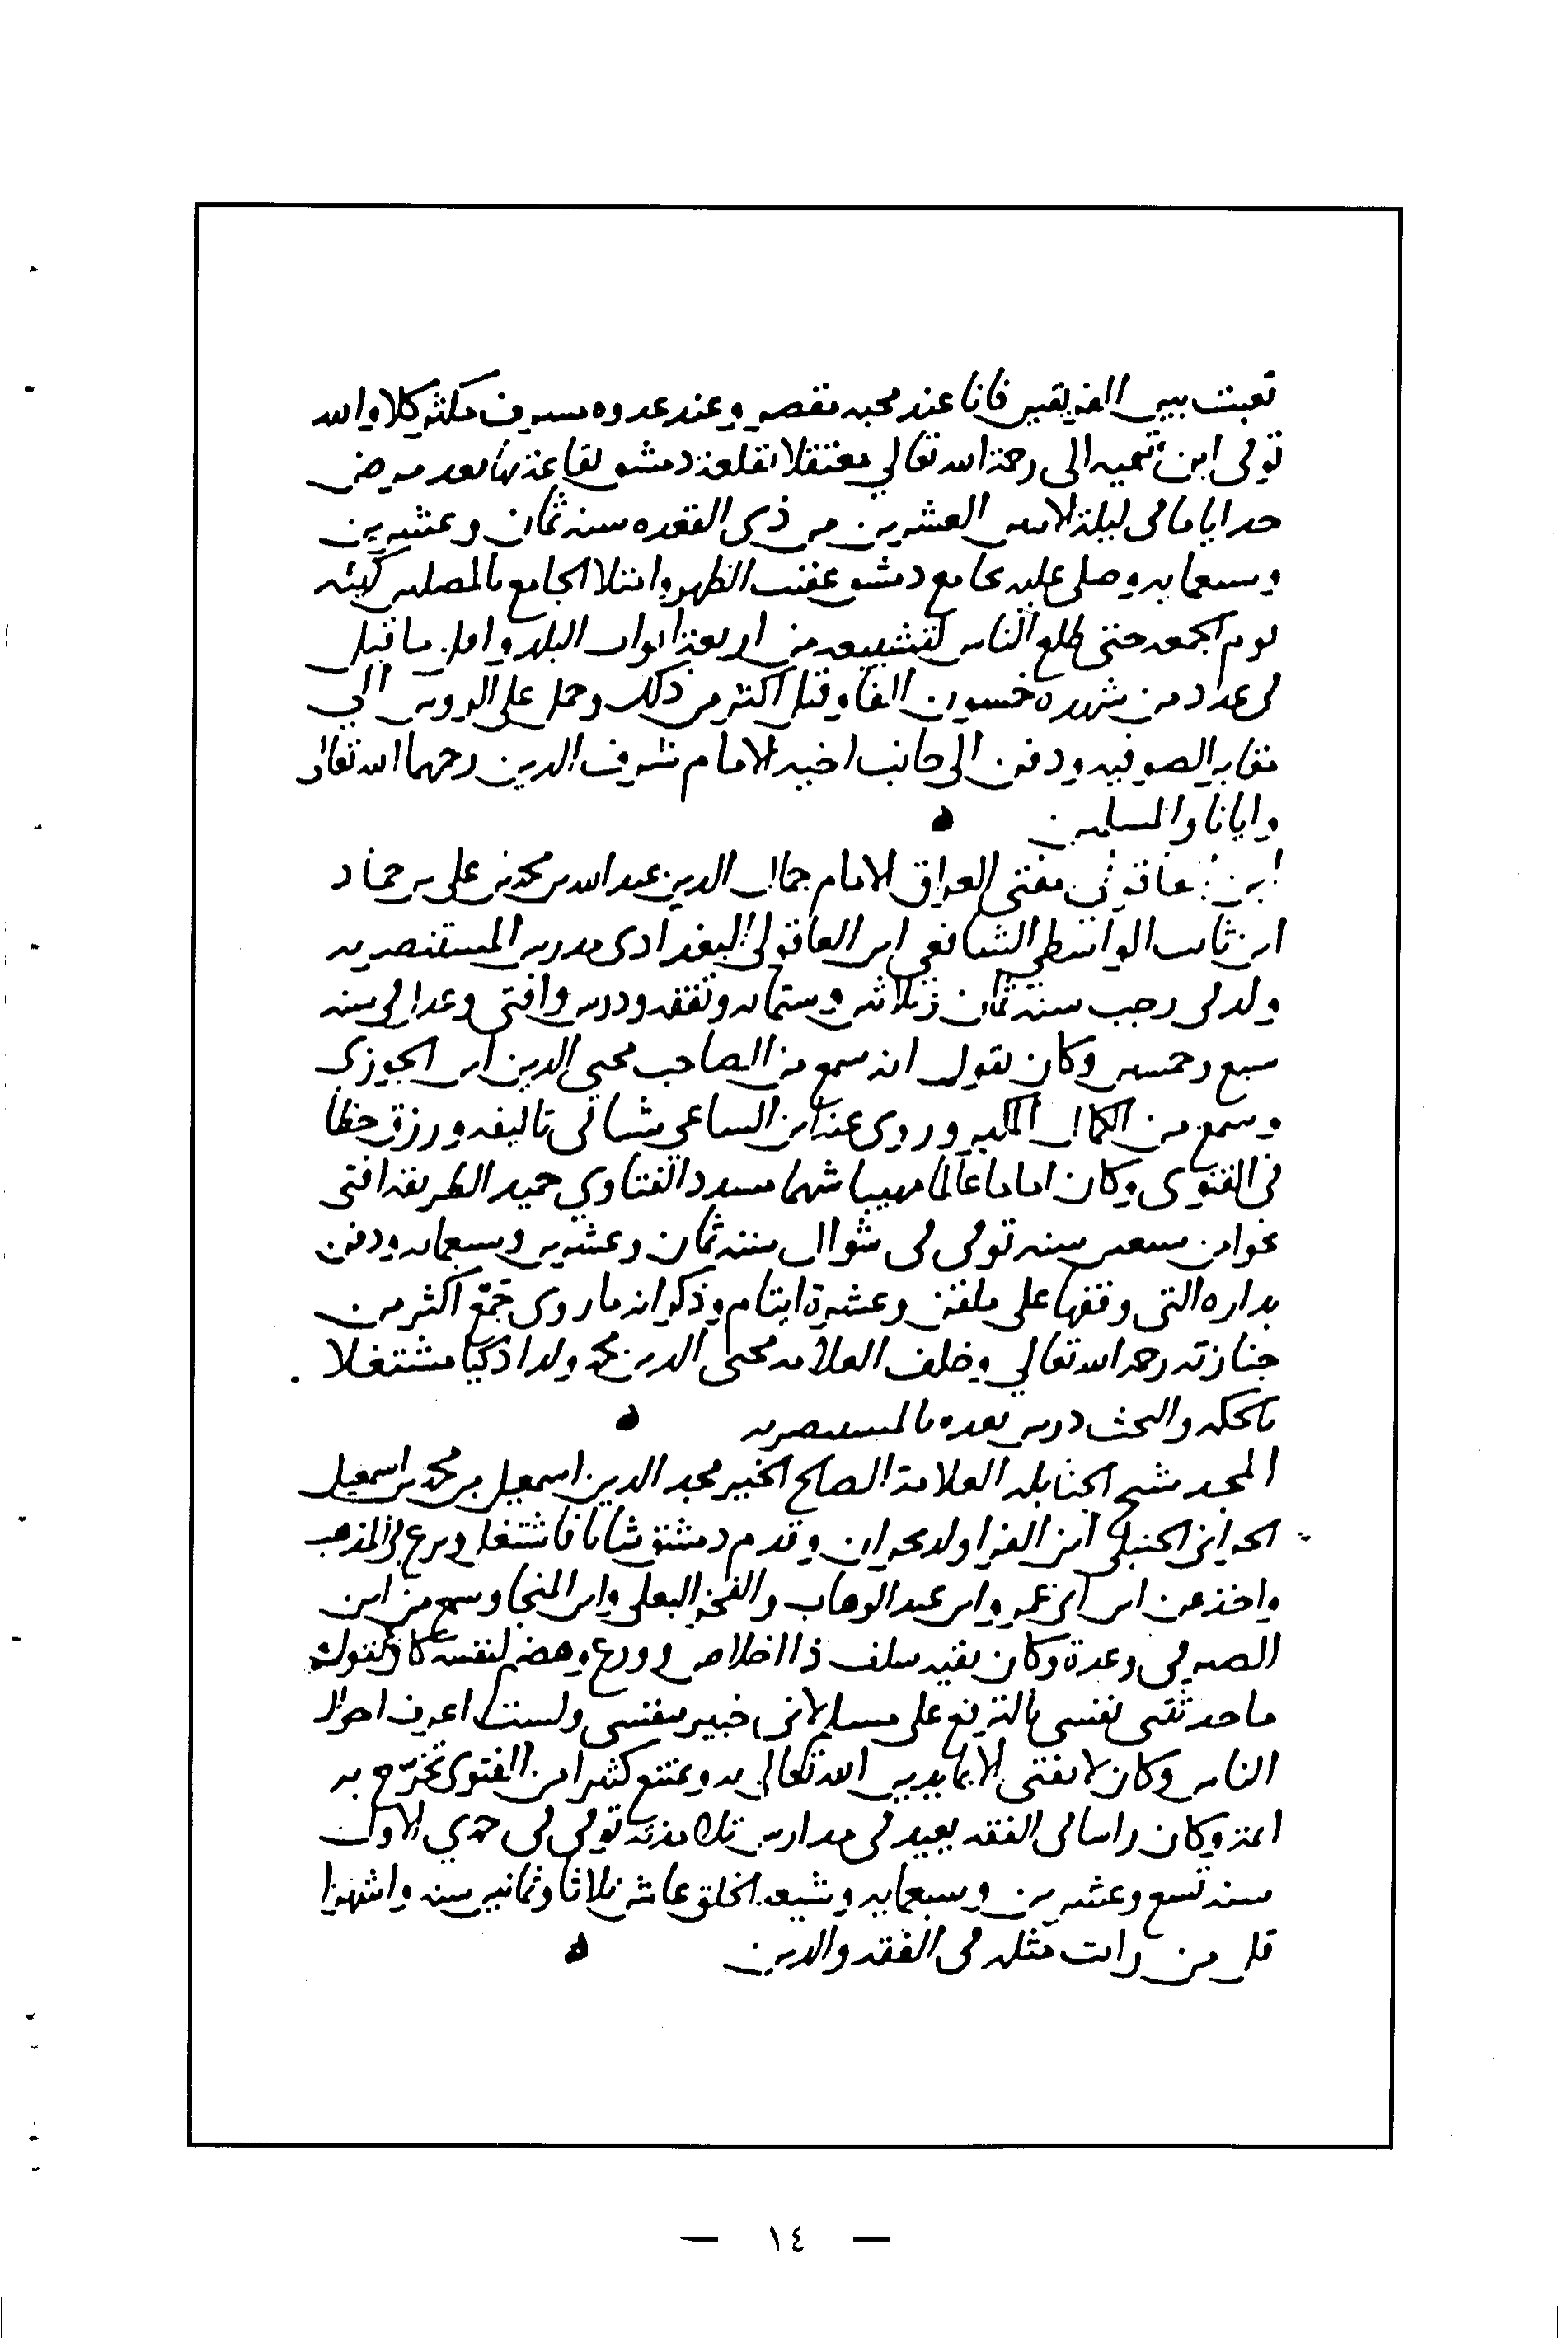 تعبت بين الفريقين فانا عند محبه مقصر وعند عدوه مسرف مكثر كلا والله
توفى ابن تيميه الى رحمة الله تعالي معتقلا بقلعة دمشق بقاعة بها بعد مرض
حد اياما فى ليلة الاثنين العشرين من ذى القعده سنه ثمان وعشرين
وسبعمايه وصلى عليه بجامع دمشق عقيب الظهر وامتلا الجامع بالمصلين كهيئه
يوم الجمعه حتى طلع الناس لتشييعه من اربعة ابواب البلد واقل ما قيل
فى عدد من شهده خمسون الفا وقيل اكثر من ذلك وحمل على الروس الي
مقابر الصوفيه ودفن الى جانب اخيه الامام شرف الدين رحمهما الله تعالى
وايانا والمسلمين ه
ابن العاقولى مفتى العراق الامام جمال الدين عبد الله بن محمد بن على بن حماد
ابن ثابت الواسطي الشافعي ابن العاقولى البغدادى مدرس المستنصريه
ولد فى رجب سنة ثمان وثلاثين وستمايه وتفقه ودرس وافتى وعدل فى سنه
سبع وخمسين وكان يقول انه سمع من الصاحب محيي الدين ابن الجوزي
وسمع من الكمال الكبير وروى عنه ابن الساعي شيا فى تاليفه ورزق حظا
فى الفتوى وكان اماما عالما مهيبا شهما مسدد الفتاوي حميد الطريقه افتى
نحوا من سبعين سنه توفى فى شوال سنه ثمان وعشرين وسبعمايه ودفن
بداره التى وقفها على ملقن وعشرة ايتام وذكر انه ما روى جمع اكثر من
جنازته رحمه الله تعالي وخلف العلامه محيى الدين محمد ولدا ذكيا مشتغلا
بالحكمه والبحث درس بعده بالمستنصريه ه
المجد شيخ الحنابله العلامة الصالح الخير مجد الدين اسمعيل بن محمد بن اسمعيل
الحرانى الحنبلى ابن الفرا ولد بحران وقدم دمشق شابا فاشتغل وبرع فى المذهب
واخذ عن ابن ابى عمر وابن عبد الوهاب والفخر البعلى وابن المنجا وسمع من ابن
الصيرفى وعدة وكان بقيه سلف ذا اخلاص وورع وهضم لنفسه كان يقول
ما حدثتنى نفسى بالترفع على مسلم لانى خبير بنفسى ولست اعرف احوال
الناس وكان لا يفتى الا بما يدين الله تعالى به ويمتنع كثيرا من الفتوى تخرّج به
ايمه وكان راسا فى الفقه يعيد فى مدارس تلامذته توفى فى جمدي الاول
سنه تسع وعشرين وسبعمايه وشيعه الخلق عاش ثلاثا وثمانين سنه واشهرا
قل من رات مثله فى الفقه والدين ه
— ١٤ —